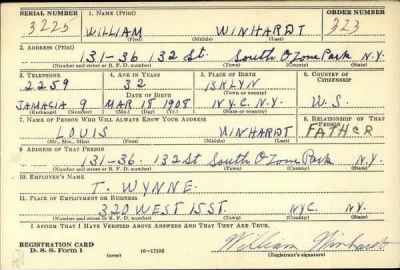 SERIAL NUMBER 1. NAME (Print) ORDER NUMBER
3225 WILLIAM WINHARDT 323
(First) (Middle) (Last)
2. ADDRESS (Print)
131-36 132 St. South Ozone Park N.Y.
(Number and street or R. F. D. number) (Town) (County) (State)
3. TELEPHONE 4. AGE IN YEARS 5. PLACE OF BIRTH 6. COUNTRY OF CITIZENSHIP
2259 32 BKLYN
DATE OF BIRTH (Town or county)
JAMACIA 9 MAR 18 1908 N.Y.C. N.Y. U.S.
(Exchange) (Number) (Mo.) (Day) (Yr.) (State or country)
7. NAME OF PERSON WHO WILL ALWAYS KNOW YOUR ADDRESS 8. RELATIONSHIP OF THAT PERSON
LOUIS WINHARDT FATHER
(Mr., Mrs., Miss) (First) (Middle) (Last)
9. ADDRESS OF THAT PERSON
131-36. 132 St South Ozone Park N.Y.
(Number and street or R. F. D. number) (Town) (County) (State)
10. EMPLOYER'S NAME
T. WYNNE.
11. PLACE OF EMPLOYMENT OR BUSINESS
320 WEST 15 ST. NYC. NY.
(Number and street or R. F. D. number) (Town) (County) (State)
I AFFIRM THAT I HAVE VERIFIED ABOVE ANSWERS AND THAT THEY ARE TRUE.
REGISTRATION CARD
D. S. S. Form 1 (over) 16-17105 William Winhardt
(Registrant's signature)